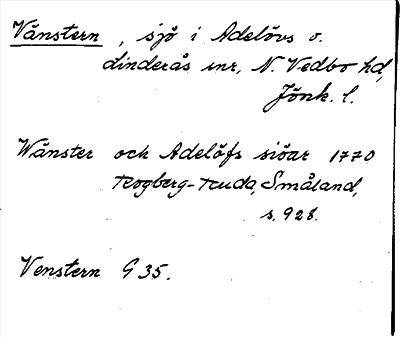 Vänstern, sjö i Adelövs o.
Linderås snr, N. Vedbo hd,
Jönk. l.
Wänster och Adelöfs siöar 1770
Rogberg-Ruda, Småland,
s. 928.
Venstern G 35.